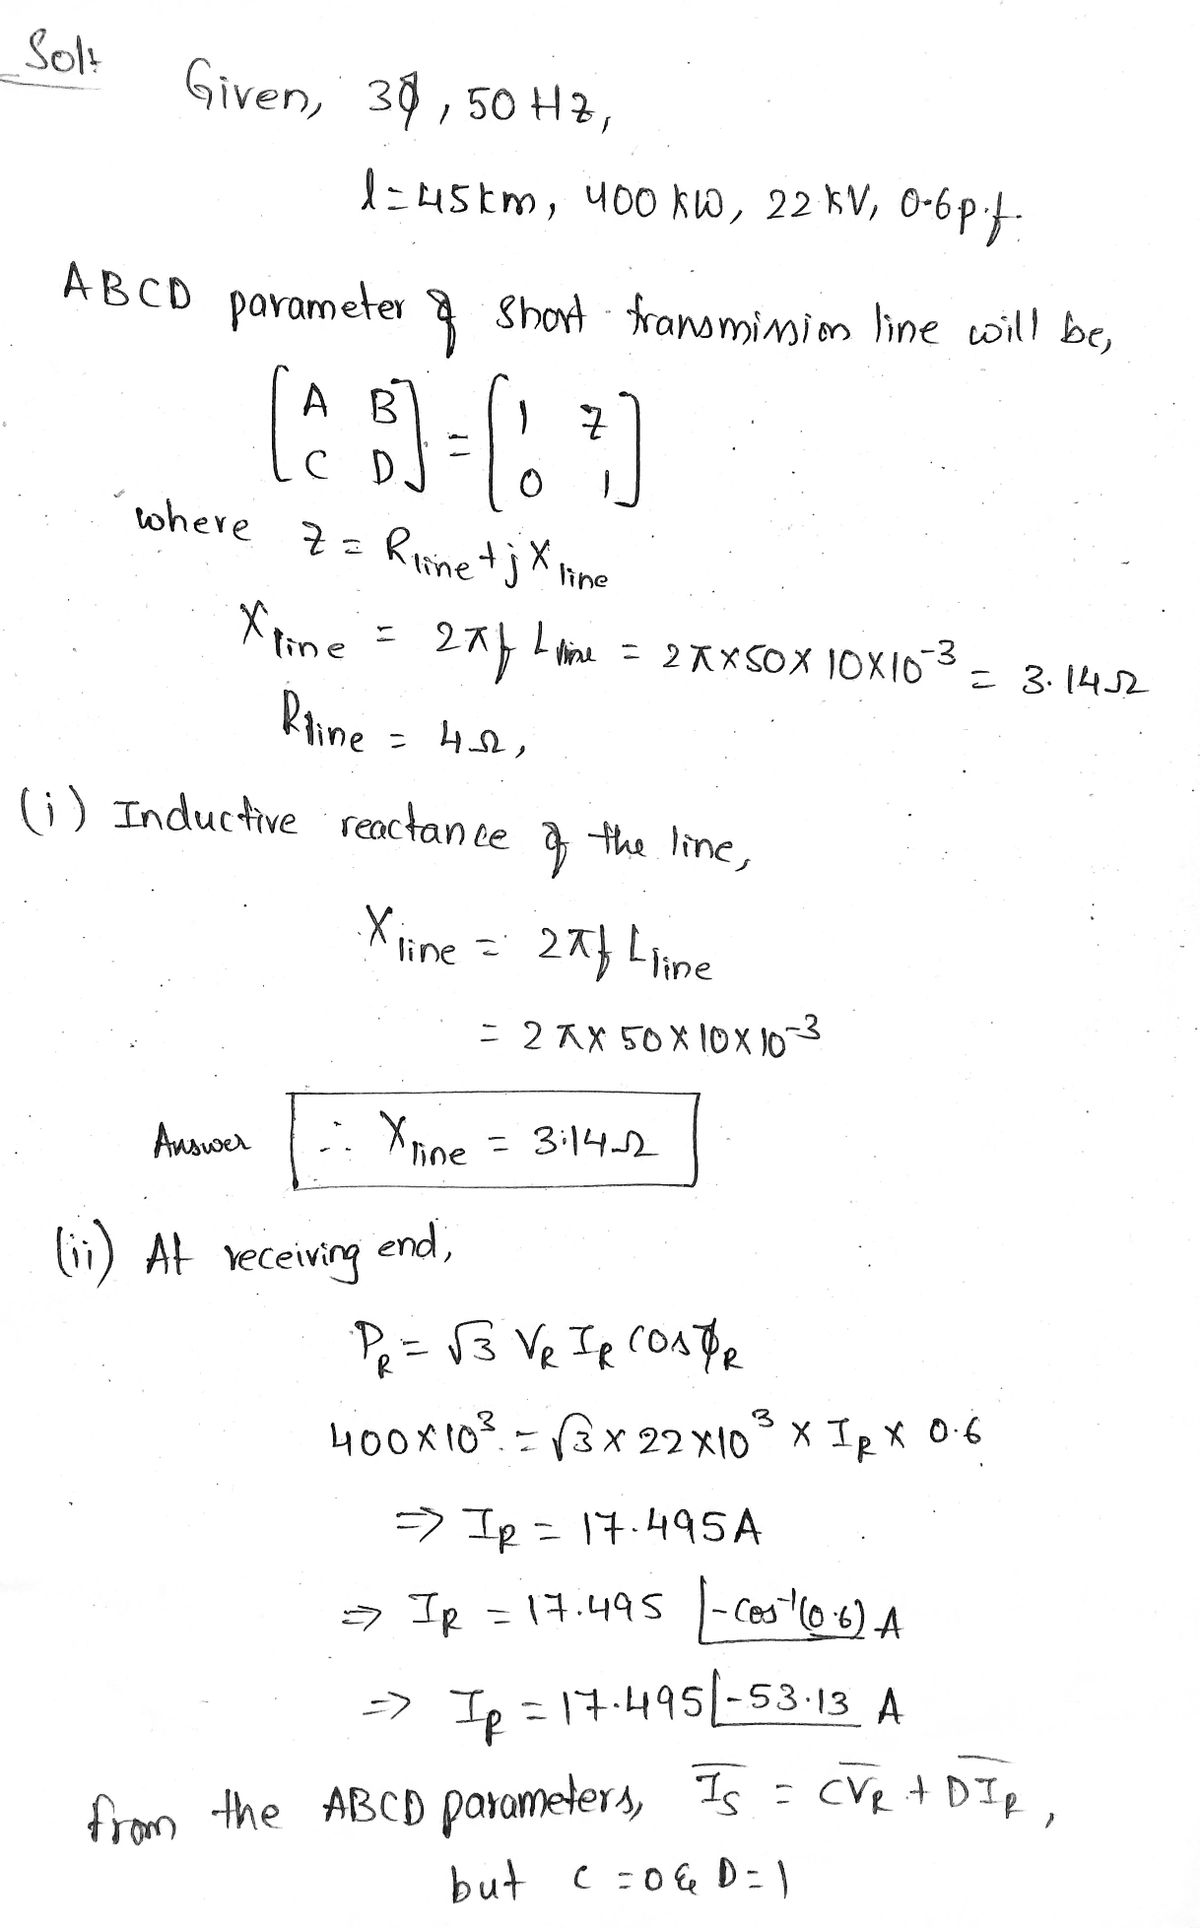 Sol:
Given, 3φ, 50 Hz,
l = 45 km, 400 kW, 22 kV, 0.6 p.f.
ABCD parameter of short transmission line will be,
[A B
C D] = [1 Z
0 1]
where Z = Rline + j Xline
Xline = 2πf Lline = 2π×50×10×10⁻³ = 3.14Ω
Rline = 4Ω,
(i) Inductive reactance of the line,
Xline = 2πf Lline
= 2π×50×10×10⁻³
Answer ∴ Xline = 3.14Ω
(ii) At receiving end,
P_R = √3 V_R I_R cos φ_R
400×10³ = √3 × 22×10³ × I_R × 0.6
⇒ I_R = 17.495 A
⇒ I_R = 17.495 ∠-cos⁻¹(0.6) A
⇒ I_R = 17.495 ∠-53.13 A
from the ABCD parameters, I̅_S = C V̅_R + D I̅_R,
but C = 0 & D = 1